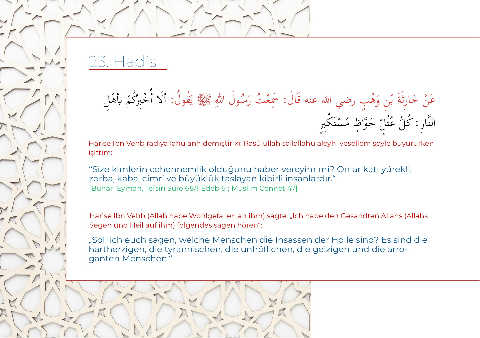 33. Hadis
عَنْ حَارِثَةَ بْنِ وَهْبٍ رضي الله عنه قَالَ: سَمِعْتُ رَسُولَ اللهِ ﷺ يَقُولُ: أَلَا أُخْبِرُكُمْ بِأَهْلِ
النَّارِ: كُلُّ عُتُلٍّ جَوَّاظٍ مُسْتَكْبِرٍ
Harise İbn Vehb radıyallahu anh demiştir ki: Resûlullah sallellahu aleyhi vesellem şöyle buyururken
işittim:
“Size kimlerin cehennemlik olduğunu haber vereyim mi? Onlar katı yürekli,
zorba, kaba, cimri ve büyüklük taslayan kibirli insanlardır.”
Harise Ibn Vehb (Allah habe Wohlgefallen an ihm) sagte: „Ich habe den Gesandten Allahs (Allahs
Segen und Heil auf ihm) folgendes sagen hören”:
„Soll ich euch sagen, welche Menschen die Insassen der Hölle sind? Es sind die
hartherzigen, die tyrannischen, die unhöflichen, die geizigen und die arro-
ganten Menschen.”